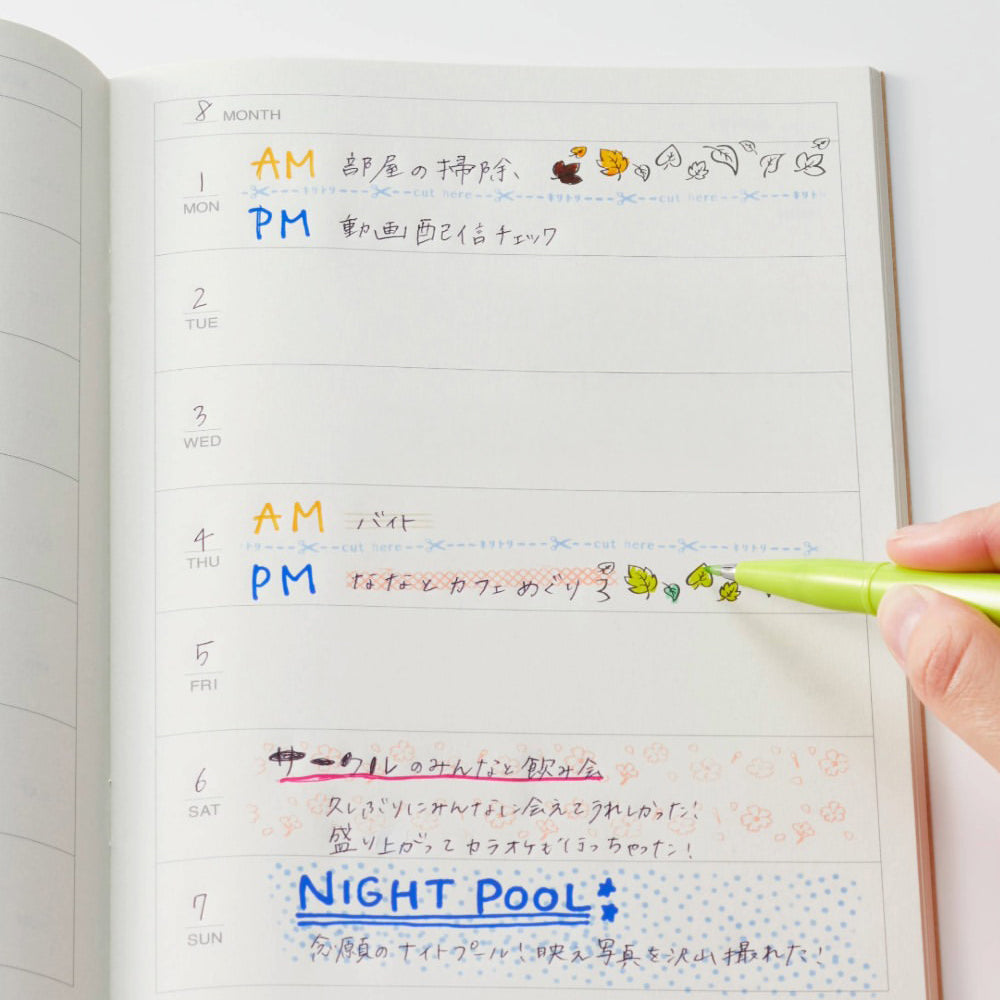 8 MONTH
1 MON
AM 部屋の掃除、
✂---キリトリ---✂---cut here---✂---キリトリ---✂---cut here---✂---キリト
PM 動画配信チェック
2 TUE
3 WED
4 THU
AM バイト
トリ---✂---cut here---✂---キリトリ---✂---cut here---✂---キリトリ---✂
PM ななとカフェめぐり
5 FRI
6 SAT
サークルのみんなと飲み会
久しぶりにみんなに会えてうれしかった!
盛り上がってカラオケも行っちゃった!
7 SUN
NIGHT POOL
念願のナイトプール!映え写真を沢山撮れた!